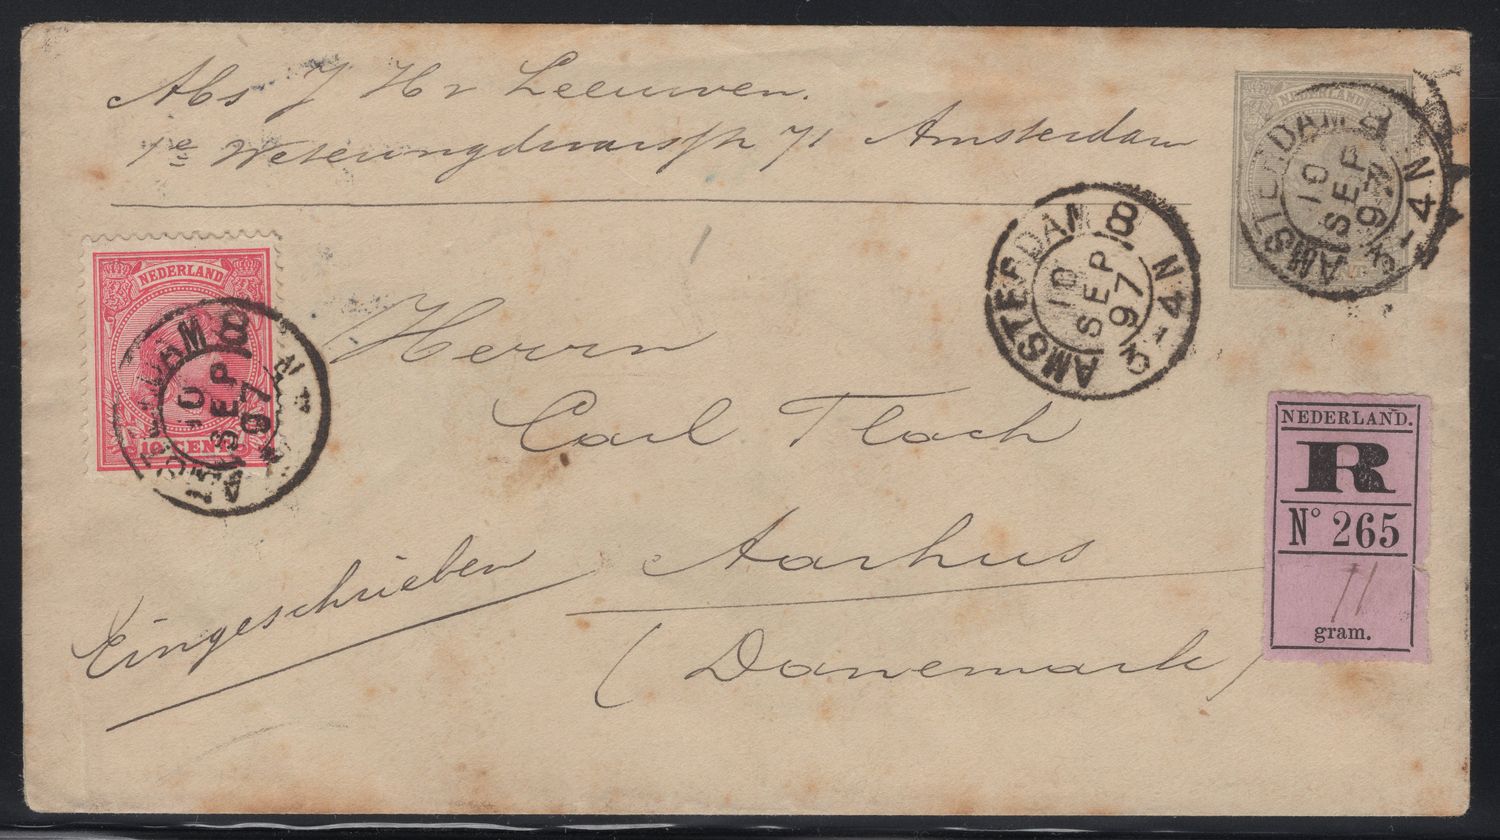 Abs J Hr Leeuwen.
1e Weteringdwarsstr 71 Amsterdam
NEDERLAND
AMSTERDAM 8
10
SEP
97
3-4 N
NEDERLAND
10 CENT
AMSTERDAM 8
10
SEP
97
N
AMSTERDAM 8
10
SEP
97
3-4 N
Herrn
Carl Flach
Aarhus
(Danemark)
Eingeschrieben
NEDERLAND.
R
No 265
11
gram.